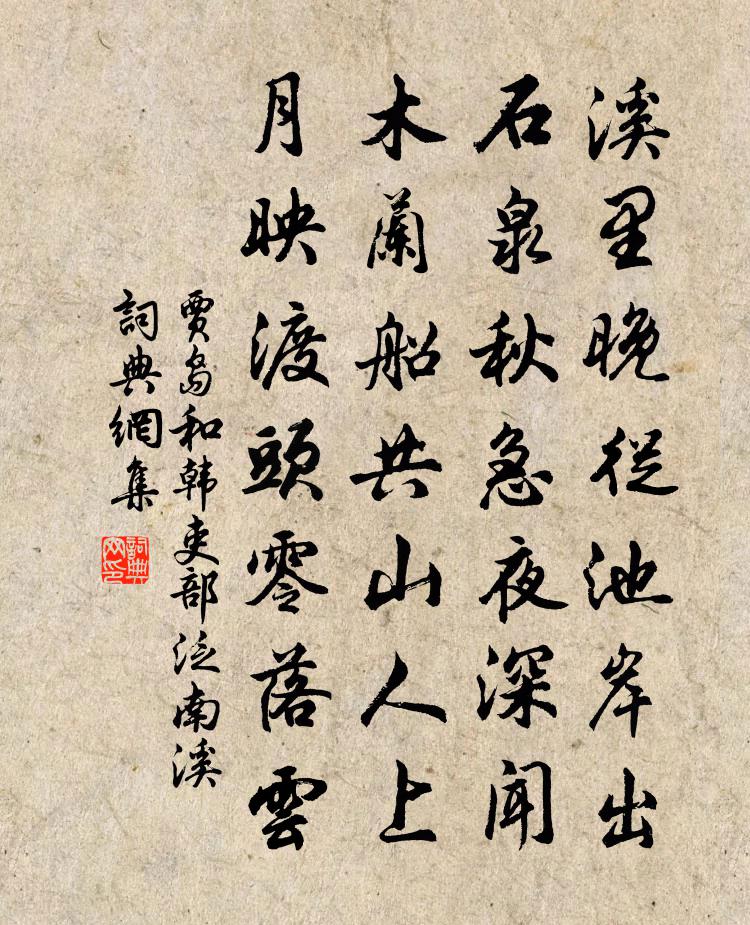 溪里晚從池岸出
石泉秋急夜深聞
木蘭船共山人上
月映渡頭零落雲
賈島和韩吏部泛南溪
詞典網集
詞典
网印